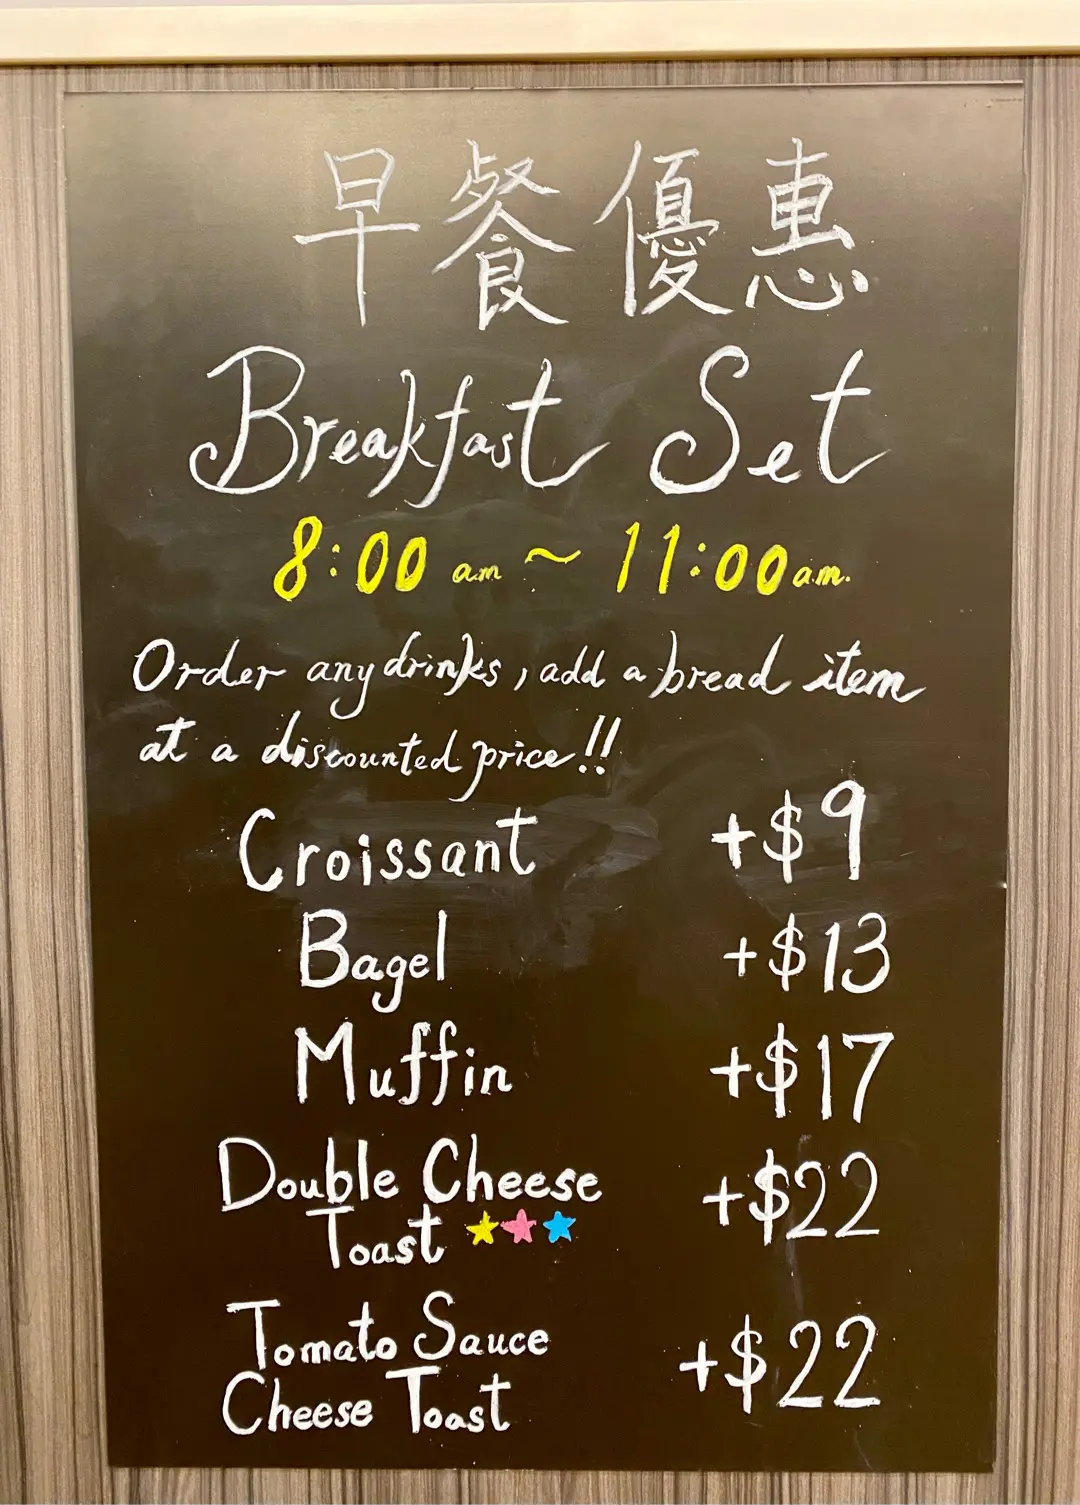 早餐優惠
Breakfast Set
8:00 am ~ 11:00 am.
Order any drinks, add a bread item
at a discounted price!!
Croissant +$9
Bagel +$13
Muffin +$17
Double Cheese
Toast +$22
Tomato Sauce
Cheese Toast +$22